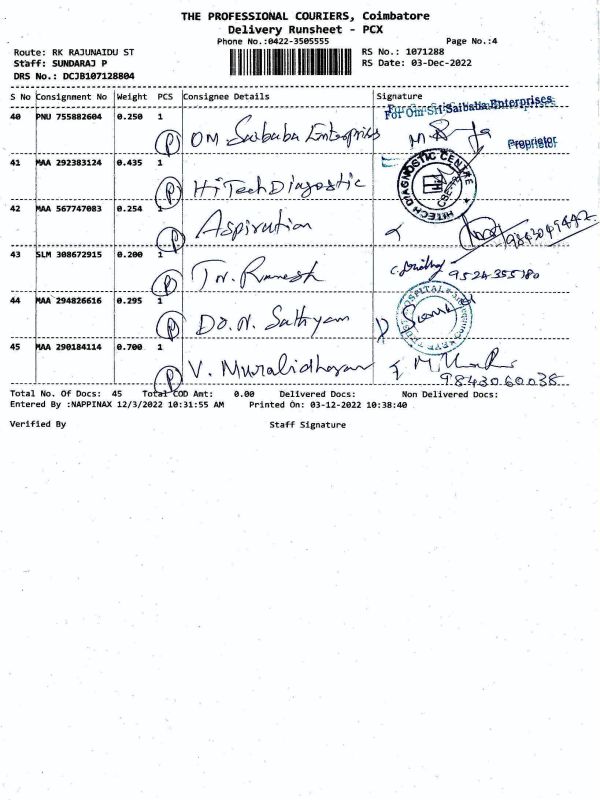 THE PROFESSIONAL COURIERS, Coimbatore
Delivery Runsheet - PCX
Phone No.:0422-3505555 Page No.:4
Route: RK RAJUNAIDU ST RS No.: 1071288
Staff: SUNDARAJ P RS Date: 03-Dec-2022
DRS No.: DCJB107128804
S No Consignment No Weight PCS Consignee Details Signature
40 PNU 755882604 0.250 1 For Om Sri Saibaba Enterprises
P OM Saibaba Enterprises
Proprietor
41 MAA 292383124 0.435 1 HITECH DIAGNOSTIC CENTRE
P HiTech Diagostic
42 MAA 567747083 0.254 1
P Aspiration
43 SLM 308672915 0.200 1
P Tr. Ramesh 9524355380
44 MAA 294826616 0.295 1
P Do. N. Sathyam
45 MAA 290184114 0.700 1
P V. Muralidharan 9843060038
Total No. Of Docs: 45 Total COD Amt: 0.00 Delivered Docs: Non Delivered Docs:
Entered By :NAPPINAX 12/3/2022 10:31:55 AM Printed On: 03-12-2022 10:38:40
Verified By Staff Signature